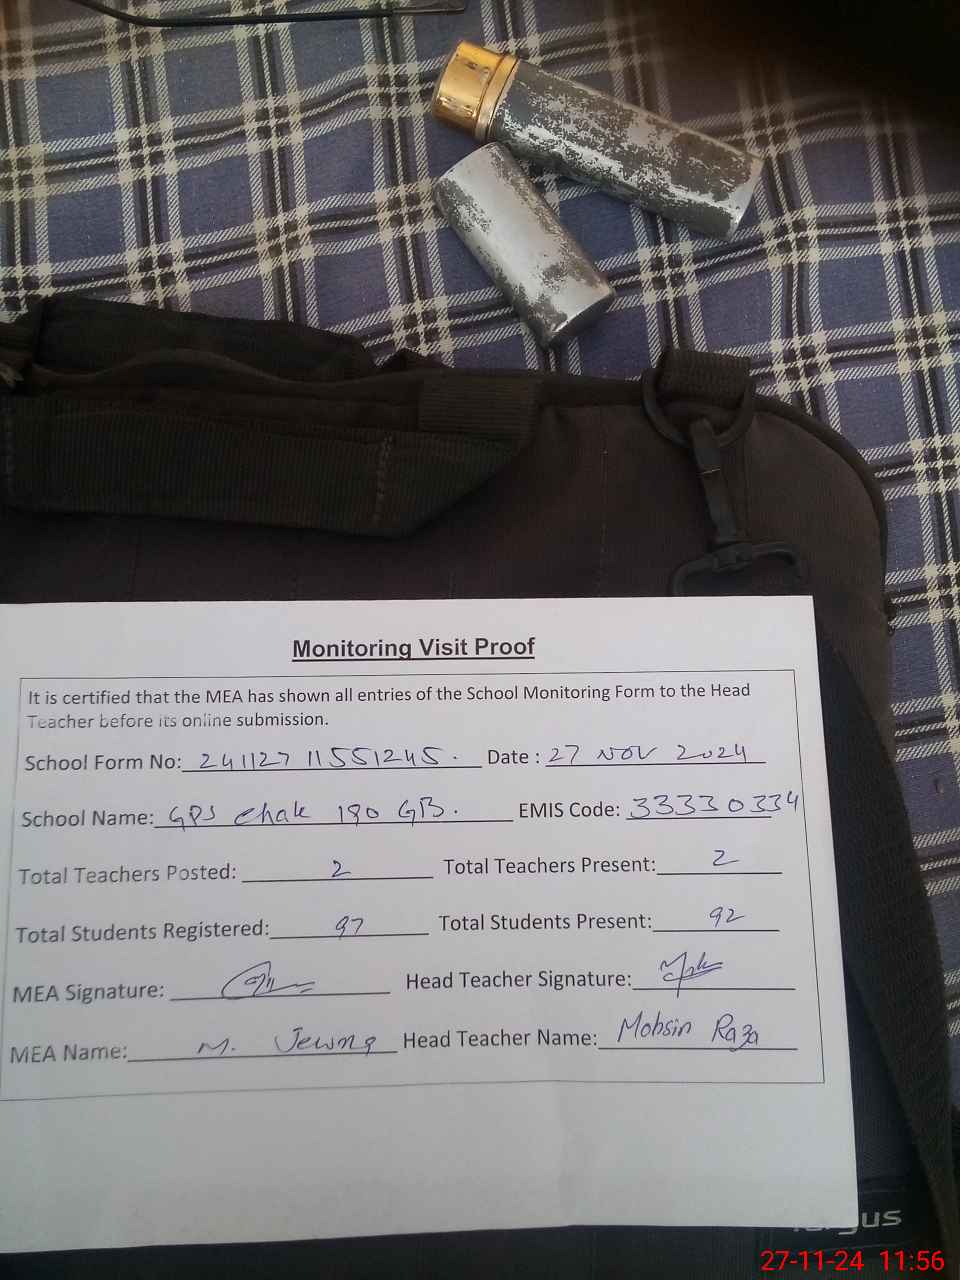 Monitoring Visit Proof
It is certified that the MEA has shown all entries of the School Monitoring Form to the Head
Teacher before its online submission.
School Form No: 241127 11551245. Date : 27 NOV 2024
School Name: GPS chak 180 GB. EMIS Code: 33330334
Total Teachers Posted: 2 Total Teachers Present: 2
Total Students Registered: 97 Total Students Present: 92
MEA Signature: Head Teacher Signature:
MEA Name: M. Head Teacher Name: Mohsin Raza
27-11-24 11:56